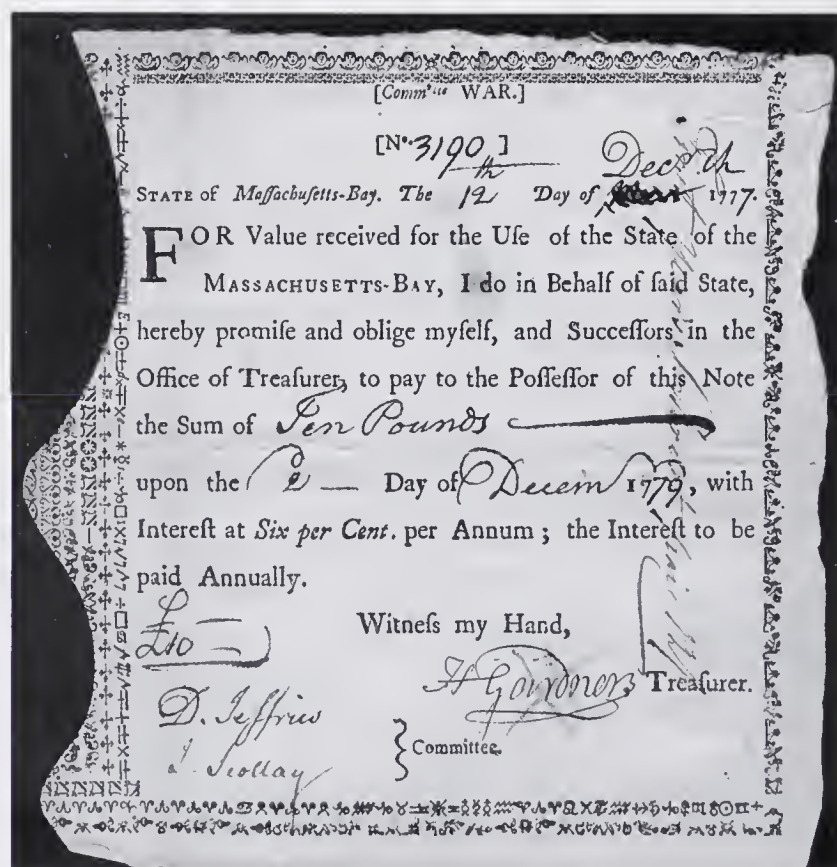 [Commᵗᵗᵉᵉ WAR.]
[Nº. 3190]
Decr.
STATE of Maſſachuſetts-Bay. The 12th Day of 1777.
FOR Value received for the Uſe of the State of the
MASSACHUSETTS-BAY, I do in Behalf of ſaid State,
hereby promiſe and oblige myſelf, and Succeſſors in the
Office of Treaſurer, to pay to the Poſſeſſor of this Note
the Sum of Ten Pounds
upon the 2 Day of Decem 1779, with
Intereſt at Six per Cent. per Annum ; the Intereſt to be
paid Annually.
£10
Witneſs my Hand,
H Gardner Treaſurer.
D. Jeffries
J. Scollay
Committee.